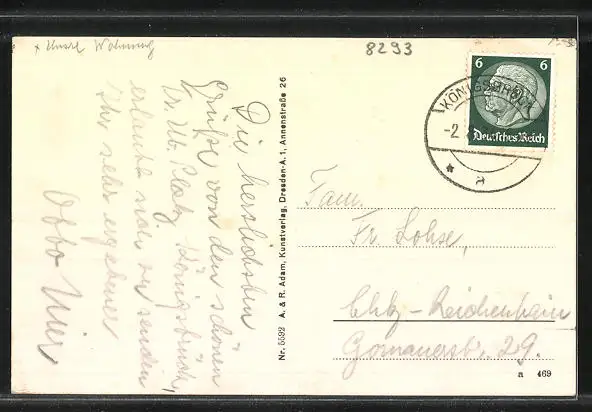 x Unsre Wohnung
8293
Die herzlichsten
Grüße von den schönen
Tr. Üb. Platz Königsbrück,
erlaubt sich zu senden
Ihr sehr ergebener
Otto
Nr. 5592 A. & R. Adam, Kunstverlag, Dresden-A. 1, Annenstraße 26
6 6
Deutsches Reich
KÖNIGSBRÜCK
-2.
* a
Fam.
Fr. Lohse,
Chtz-Reichenhain
29.
a 469